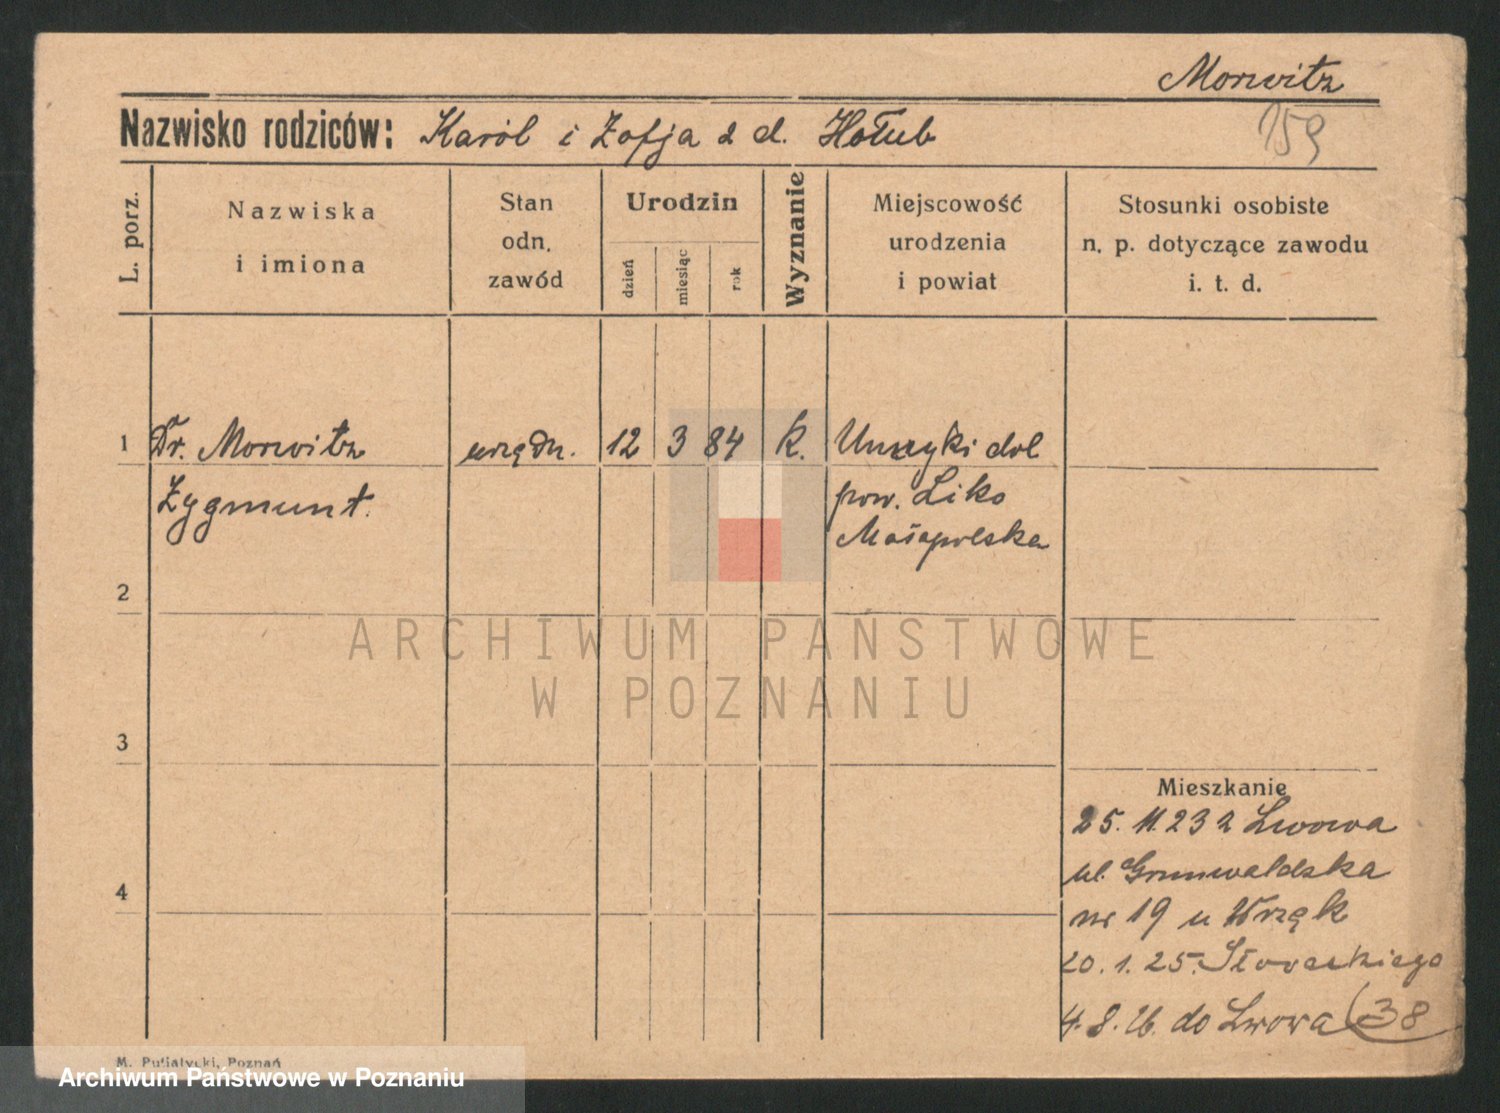 Morwitz
Nazwisko rodziców: Karól i Zofja z d. Hołub
159
L. porz.
Nazwiska
i imiona
Stan
odn.
zawód
Urodzin
dzień
miesiąc
rok
Wyznanie
Miejscowość
urodzenia
i powiat
Stosunki osobiste
n. p. dotyczące zawodu
i. t. d.
1 Dr. Morwitz urzędn. 12 3 84 k. Ustrzyki dol
Zygmunt. pow. Lisko
Małopolska
2
ARCHIWUM PAŃSTWOWE
W POZNANIU
3
Mieszkanie
25. 11. 23 z Lwowa
ul. Grunwaldska
4
nr 19 u Wrzęk
20. 1. 25. Słowackiego
4. 8. 26. do Lwowa 38
M. Putiatycki, Poznań
Archiwum Państwowe w Poznaniu